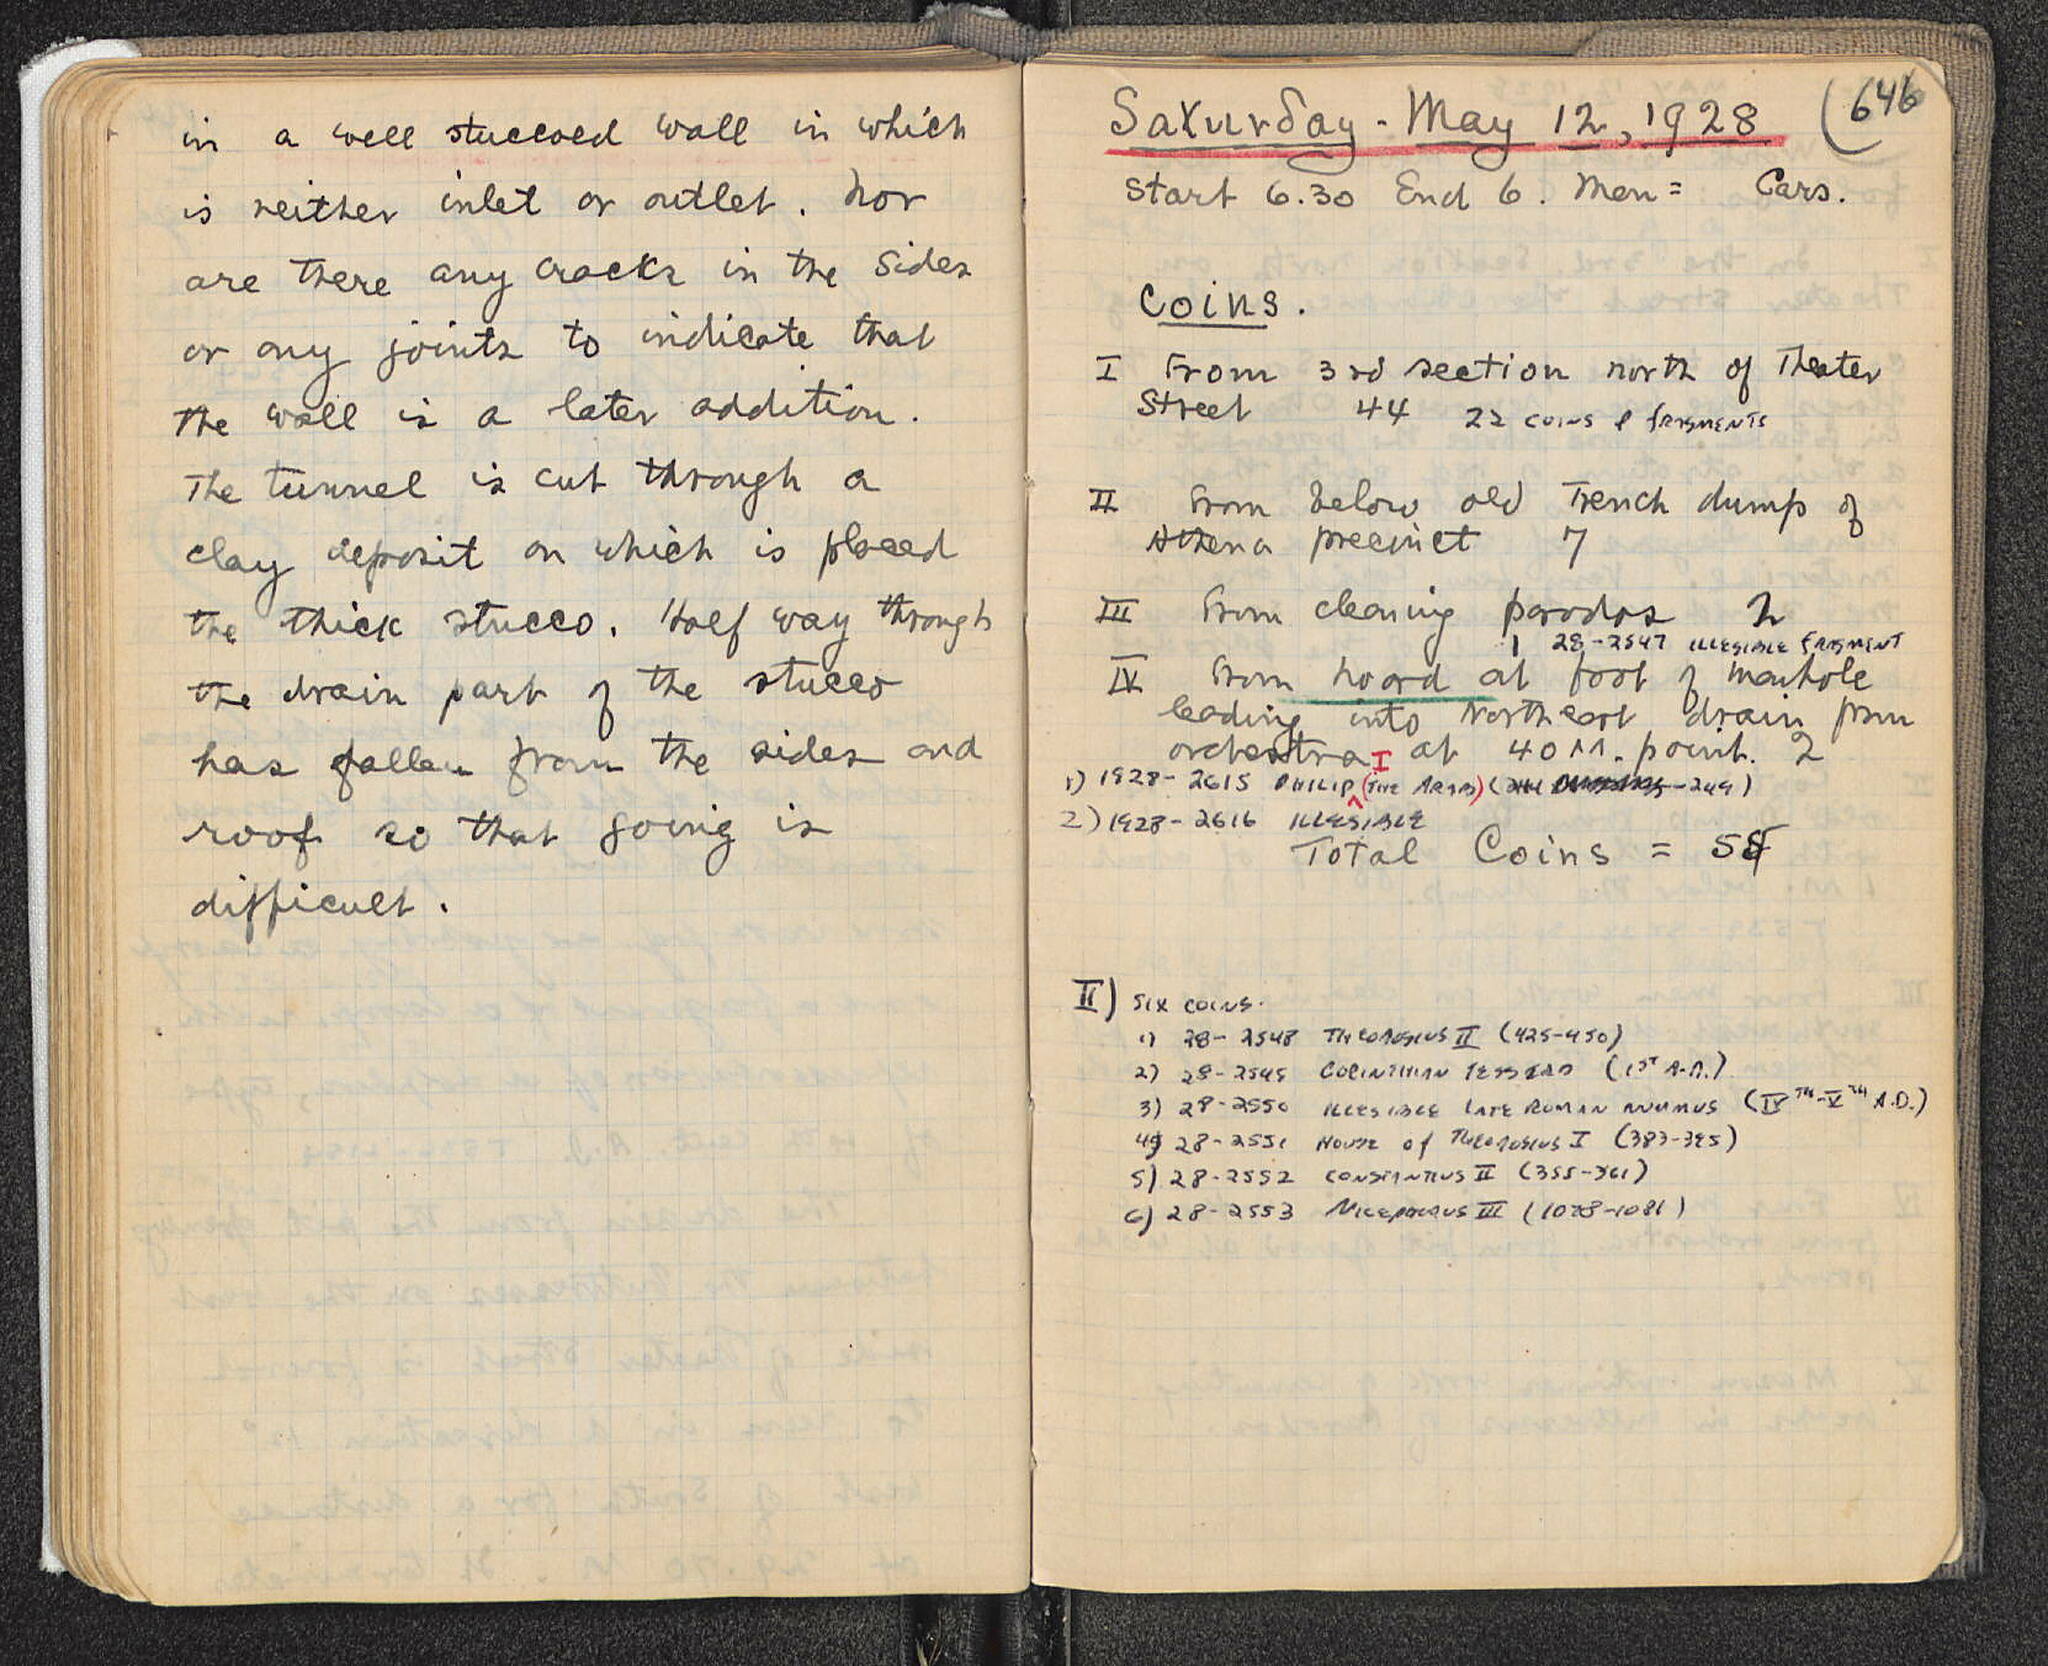 in a well stuccoed wall in which
is neither inlet or outlet. Nor
are there any cracks in the sides
or any joints to indicate that
the wall is a later addition.
The tunnel is cut through a
clay deposit on which is placed
the thick stucco. Half way through
the drain part of the stucco
has fallen from the sides and
roof so that going is
difficult.
646
Saturday - May 12, 1928
Start 6.30 End 6. Men = Cars.
Coins.
I From 3rd section north of Theater
Street 44 22 COINS & FRAGMENTS
II From below old trench dump of
Athena precinct 7
III From clearing parodos 2
1 28-2547 ILLEGIBLE FRAGMENT
IV From hoard at foot of manhole
leading into Northeast drain from
orchestra at 40 M. point. 2
1) 1928-2615 PHILIP I (THE ARAB) (244-249)
2) 1928-2616 ILLEGIBLE
Total Coins = 55
II) SIX COINS.
1) 28-2548 THEODOSIUS II (425-450)
2) 28-2549 CORINTHIAN TESSERA (1ST A.D.)
3) 28-2550 ILLEGIBLE LATE ROMAN NUMMUS (IVTH-VTH A.D.)
4) 28-2551 HOUSE OF THEODOSIUS I (383-395)
5) 28-2552 CONSTANTIUS II (355-361)
6) 28-2553 NICEPHORUS III (1078-1081)